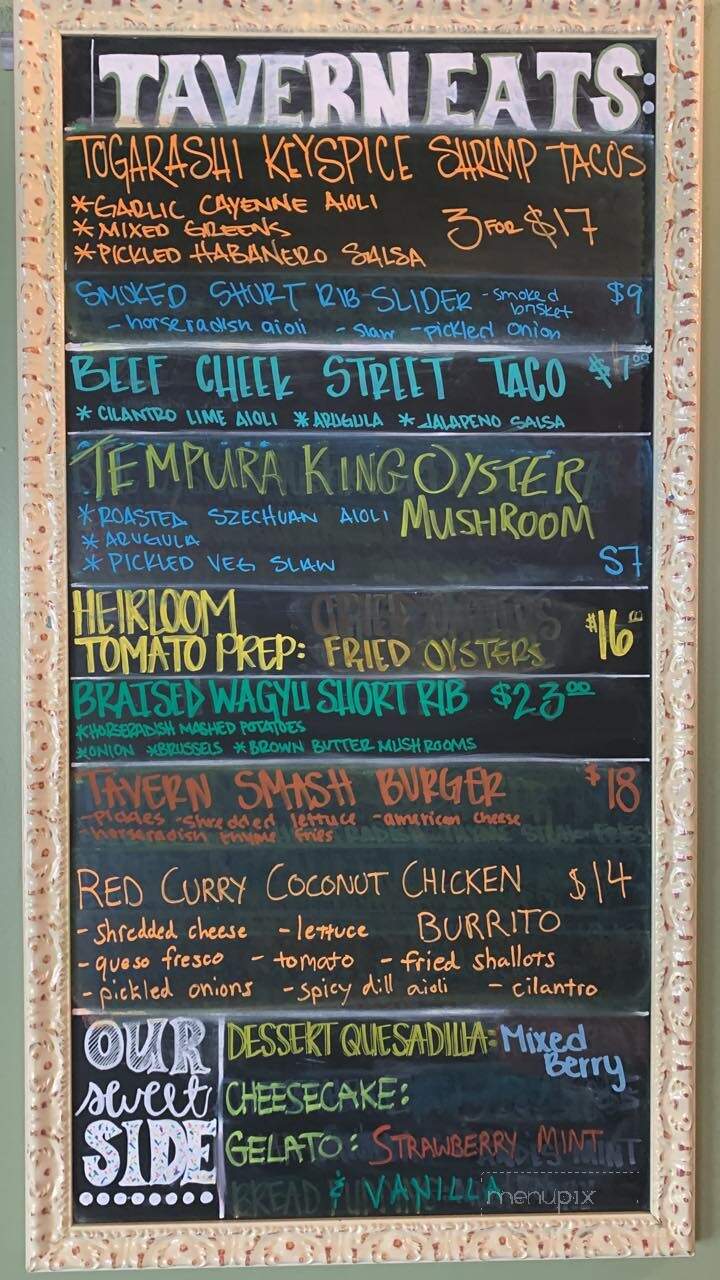 TAVERN EATS:
TOGARASHI KEYSPICE SHRIMP TACOS
*GARLIC CAYENNE AIOLI
*MIXED GREENS
3 FOR $17
*PICKLED HABANERO SALSA
SMOKED SHORT RIB SLIDER - smoked brisket $9
- horseradish aioli - slaw - pickled onion
BEEF CHEEK STREET TACO $7.00
* CILANTRO LIME AIOLI * ARUGULA * JALAPENO SALSA
TEMPURA KING OYSTER
MUSHROOM
*ROASTED SZECHUAN AIOLI
*ARUGULA
* PICKLED VEG SLAW $7
HEIRLOOM
TOMATO PREP: FRIED OYSTERS $16
BRAISED WAGYU SHORT RIB $23.00
*HORSERADISH MASHED POTATOES
*ONION *BRUSSELS *BROWN BUTTER MUSHROOMS
TAVERN SMASH BURGER $18
- pickles - shredded lettuce - american cheese
- horseradish thyme fries
RED CURRY COCONUT CHICKEN $14
BURRITO
- shredded cheese - lettuce
- queso fresco - tomato - fried shallots
- pickled onions - spicy dill aioli - cilantro
OUR
sweet
SIDE
DESSERT QUESADILLA: Mixed
Berry
CHEESECAKE:
GELATO: STRAWBERRY MINT
& VANILLA
menupix